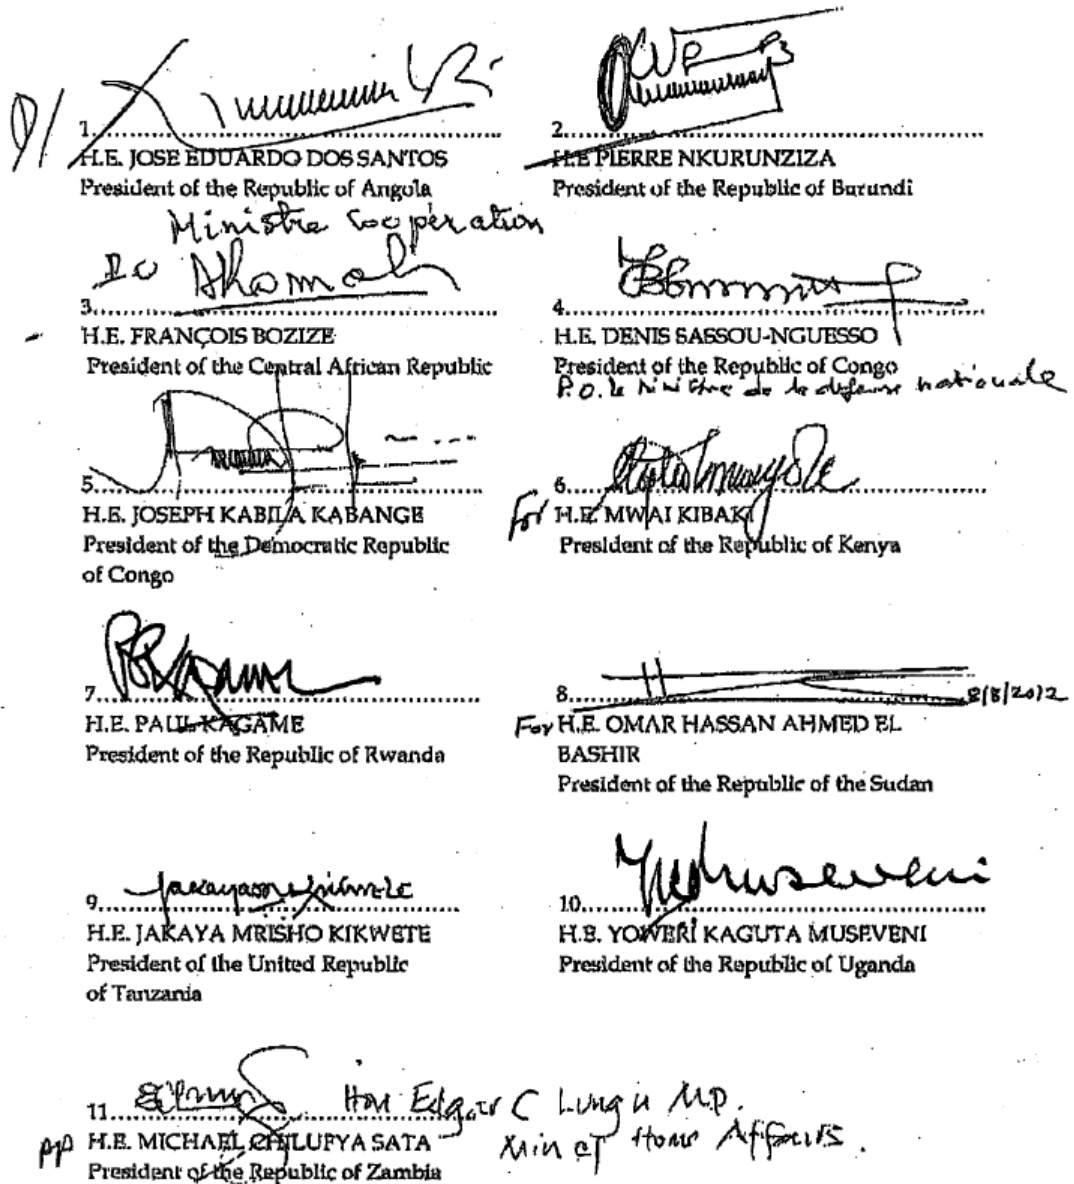 P/
1.
H.E. JOSE EDUARDO DOS SANTOS
President of the Republic of Angola
2.
H.E PIERRE NKURUNZIZA
President of the Republic of Burundi
Ministre Coopération
3.
H.E. FRANÇOIS BOZIZE
President of the Central African Republic
4.
H.E. DENIS SASSOU-NGUESSO
President of the Republic of Congo
P.O. le Ministre de la défense nationale
5.
H.E. JOSEPH KABILA KABANGE
President of the Democratic Republic
of Congo
6.
For H.E. MWAI KIBAKI
President of the Republic of Kenya
7.
H.E. PAUL KAGAME
President of the Republic of Rwanda
8. 8/8/2012
For H.E. OMAR HASSAN AHMED EL
BASHIR
President of the Republic of the Sudan
9.
H.E. JAKAYA MRISHO KIKWETE
President of the United Republic
of Tanzania
10.
H.E. YOWERI KAGUTA MUSEVENI
President of the Republic of Uganda
11. Hon Edgar C Lungu MP.
pp H.E. MICHAEL CHILUFYA SATA Min of Home Affairs.
President of the Republic of Zambia